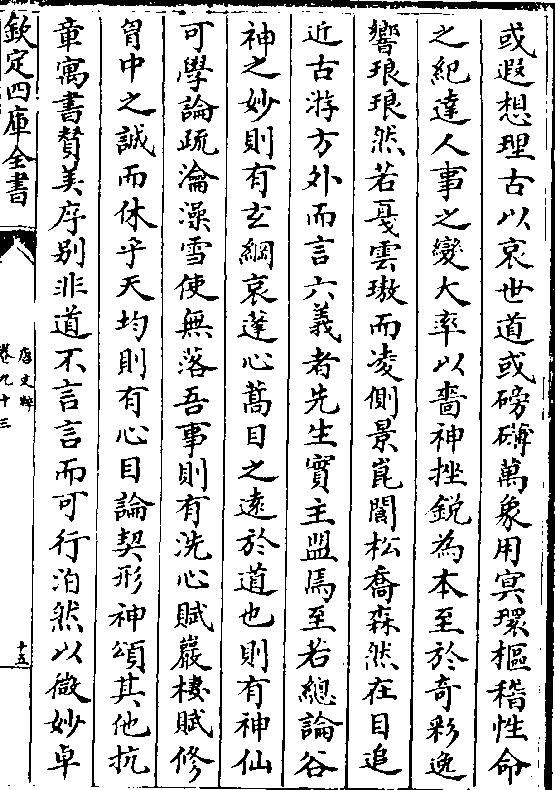 或遐想理古以哀世道或磅礴萬象用㝠環樞稽性命
之紀達人事之變大率以嗇神挫鋭為本至於竒彩逸
響琅琅然若戞雲璈而凌倒景崑閬松喬森然在目追
近古游方外而言六義者先生實主盟焉至若總論谷
神之妙則有玄綱哀蓬心蒿目之逺於道也則有神仙
可學論疏瀹澡雪使無落吾事則有洗心賦巖棲賦修
胷中之誠而休乎天均則有心目論契形神頌其他抗
章寓書賛美序别非道不言言而可行泊然以微妙卓
欽定四庫全書
唐文粹
卷九十三
十五